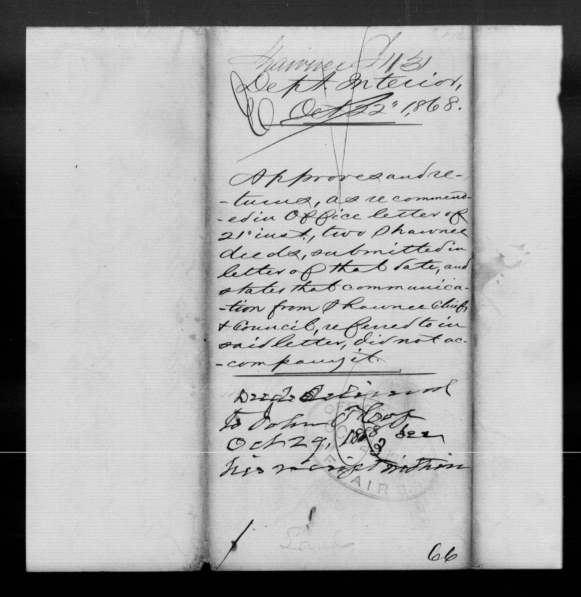 Shawnee I 1131
Dept. Interior,
Oct 22" 1868.
Approves and re-
-turns, as recommend-
-ed in Office letter of
21" inst., two Shawnee
deeds, submitted in
letter of that date, and
states that communica-
-tion from Shawnee Chiefs
& Council, referred to in
said letter, did not ac-
-company it.
Deeds Delivered
to John T. Cox
Oct 29, 1868 See
his receipt within
AIRS
66